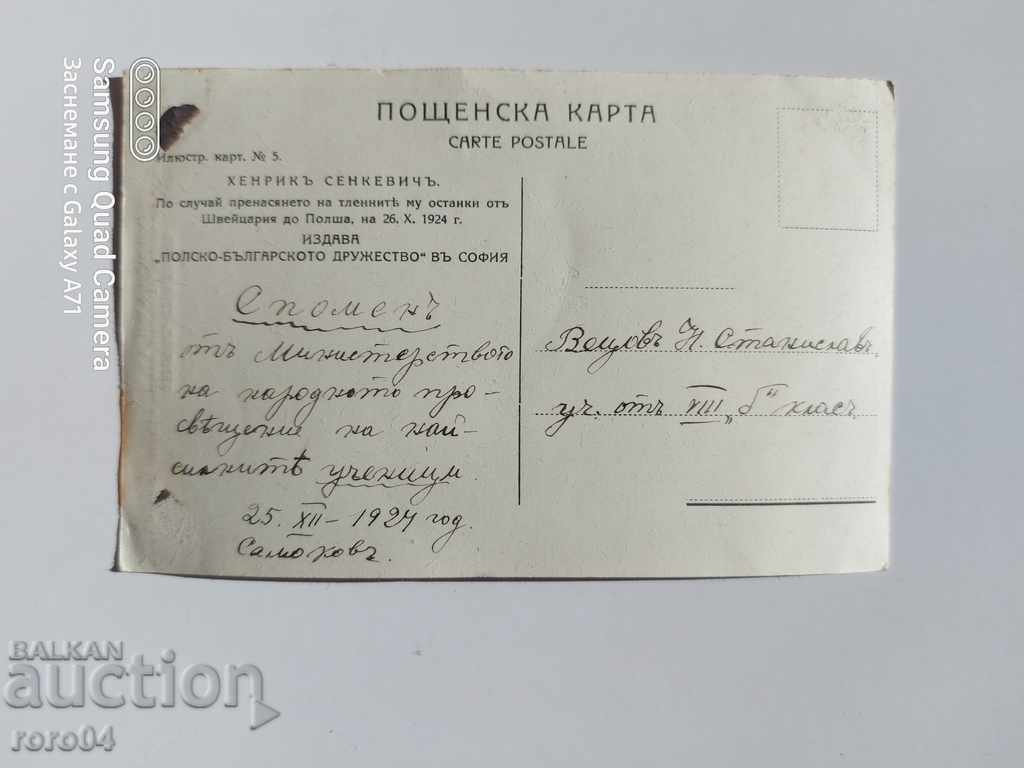 ПОЩЕНСКА КАРТА
CARTE POSTALE
Илюстр. карт. № 5.
ХЕНРИКЪ СЕНКЕВИЧЪ.
По случай пренасянето на тленнитѣ му останки отъ
Швейцария до Полша, на 26. X. 1924 г.
ИЗДАВА
„ПОЛСКО-БЪЛГАРСКОТО ДРУЖЕСТВО“ ВЪ СОФИЯ
Споменъ
отъ Министерството
на народното про-
свѣщение на най-
силнитѣ ученици.
25. XII – 1924 год.
Самоковъ.
Н. Станиславъ
уч. отъ VIII „б“ класъ
Samsung Quad Camera
Заснемане с Galaxy A71
BALKAN
auction
roro04